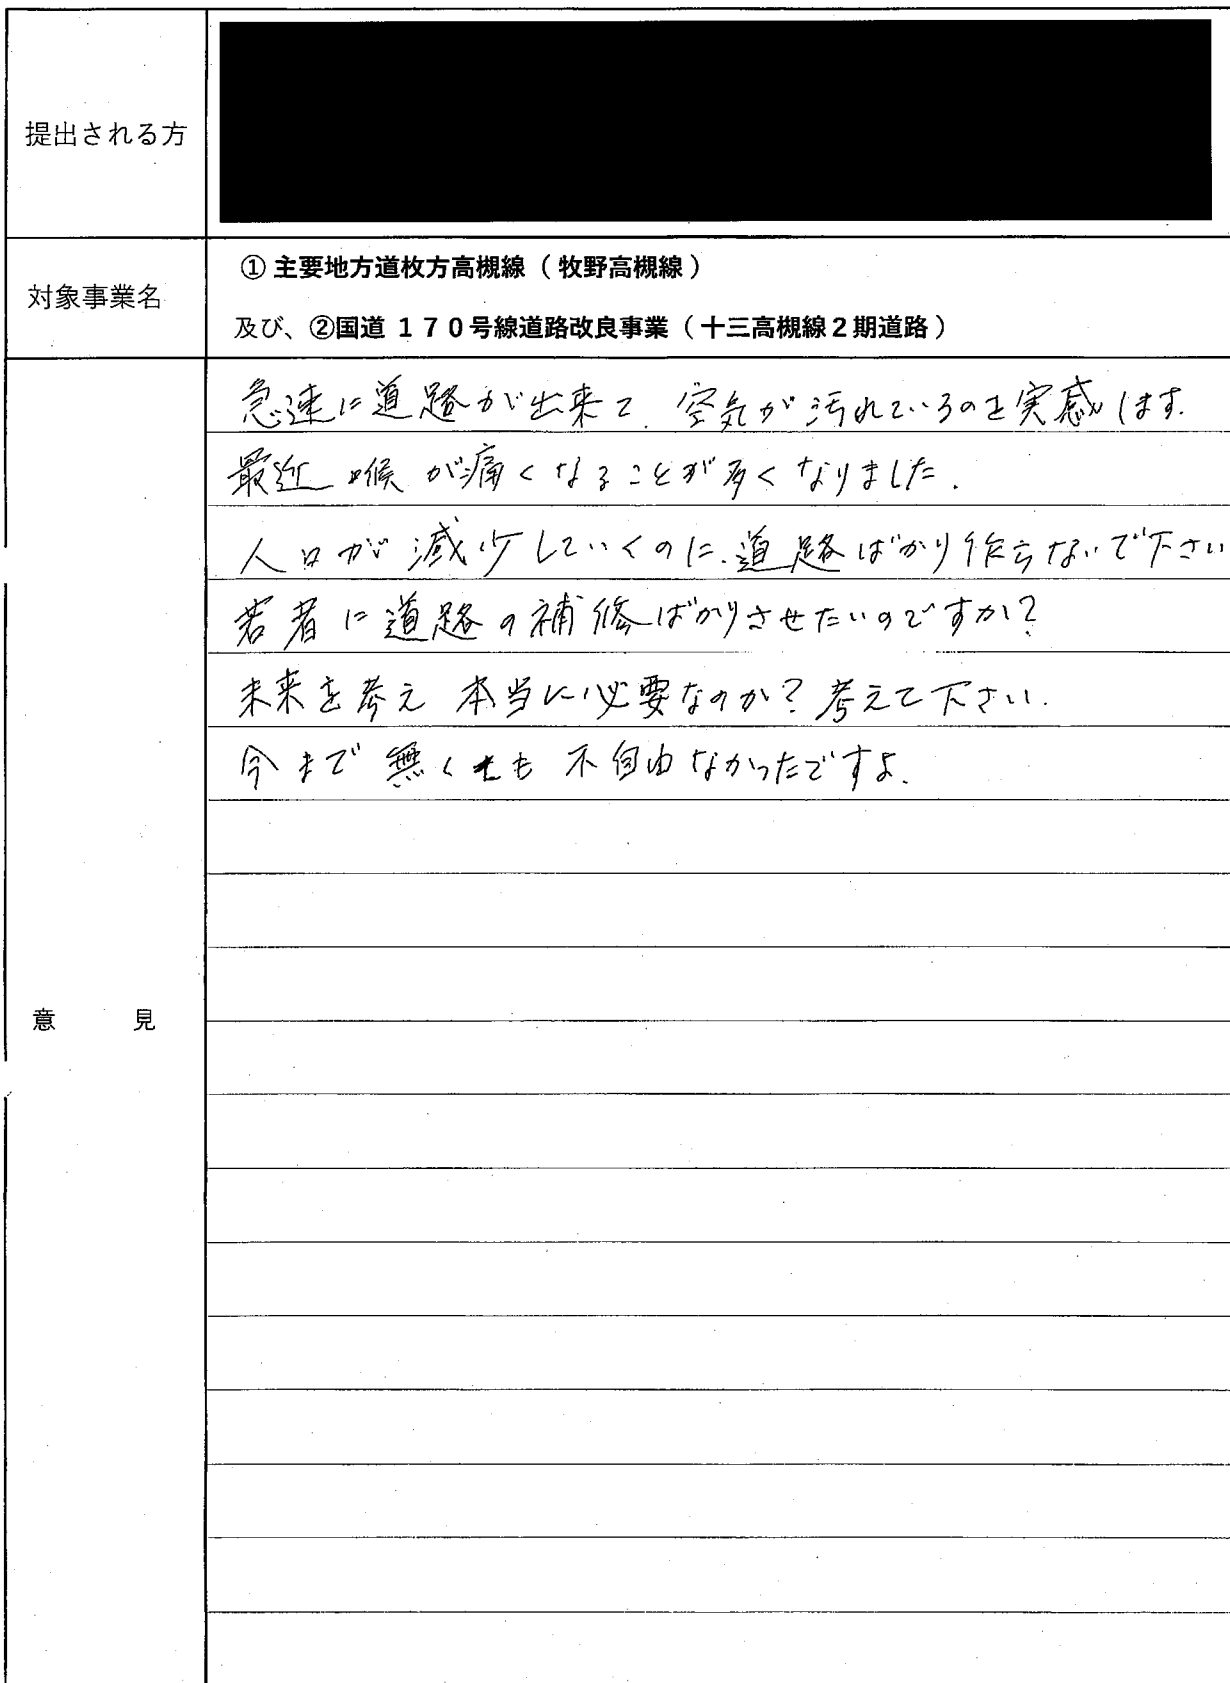 提出される方
対象事業名
① 主要地方道枚方高槻線（牧野高槻線）
及び、②国道 １７０号線道路改良事業（十三高槻線２期道路）
意 見
急速に道路が出来て、空気が汚れているのを実感します.
最近喉が痛くなることが多くなりました.
人口が減少していくのに、道路ばかり作らないで下さい
若者に道路の補修ばかりさせたいのですか?
未来を考え 本当に必要なのか? 考えて下さい.
今まで無くても 不自由なかったですよ.